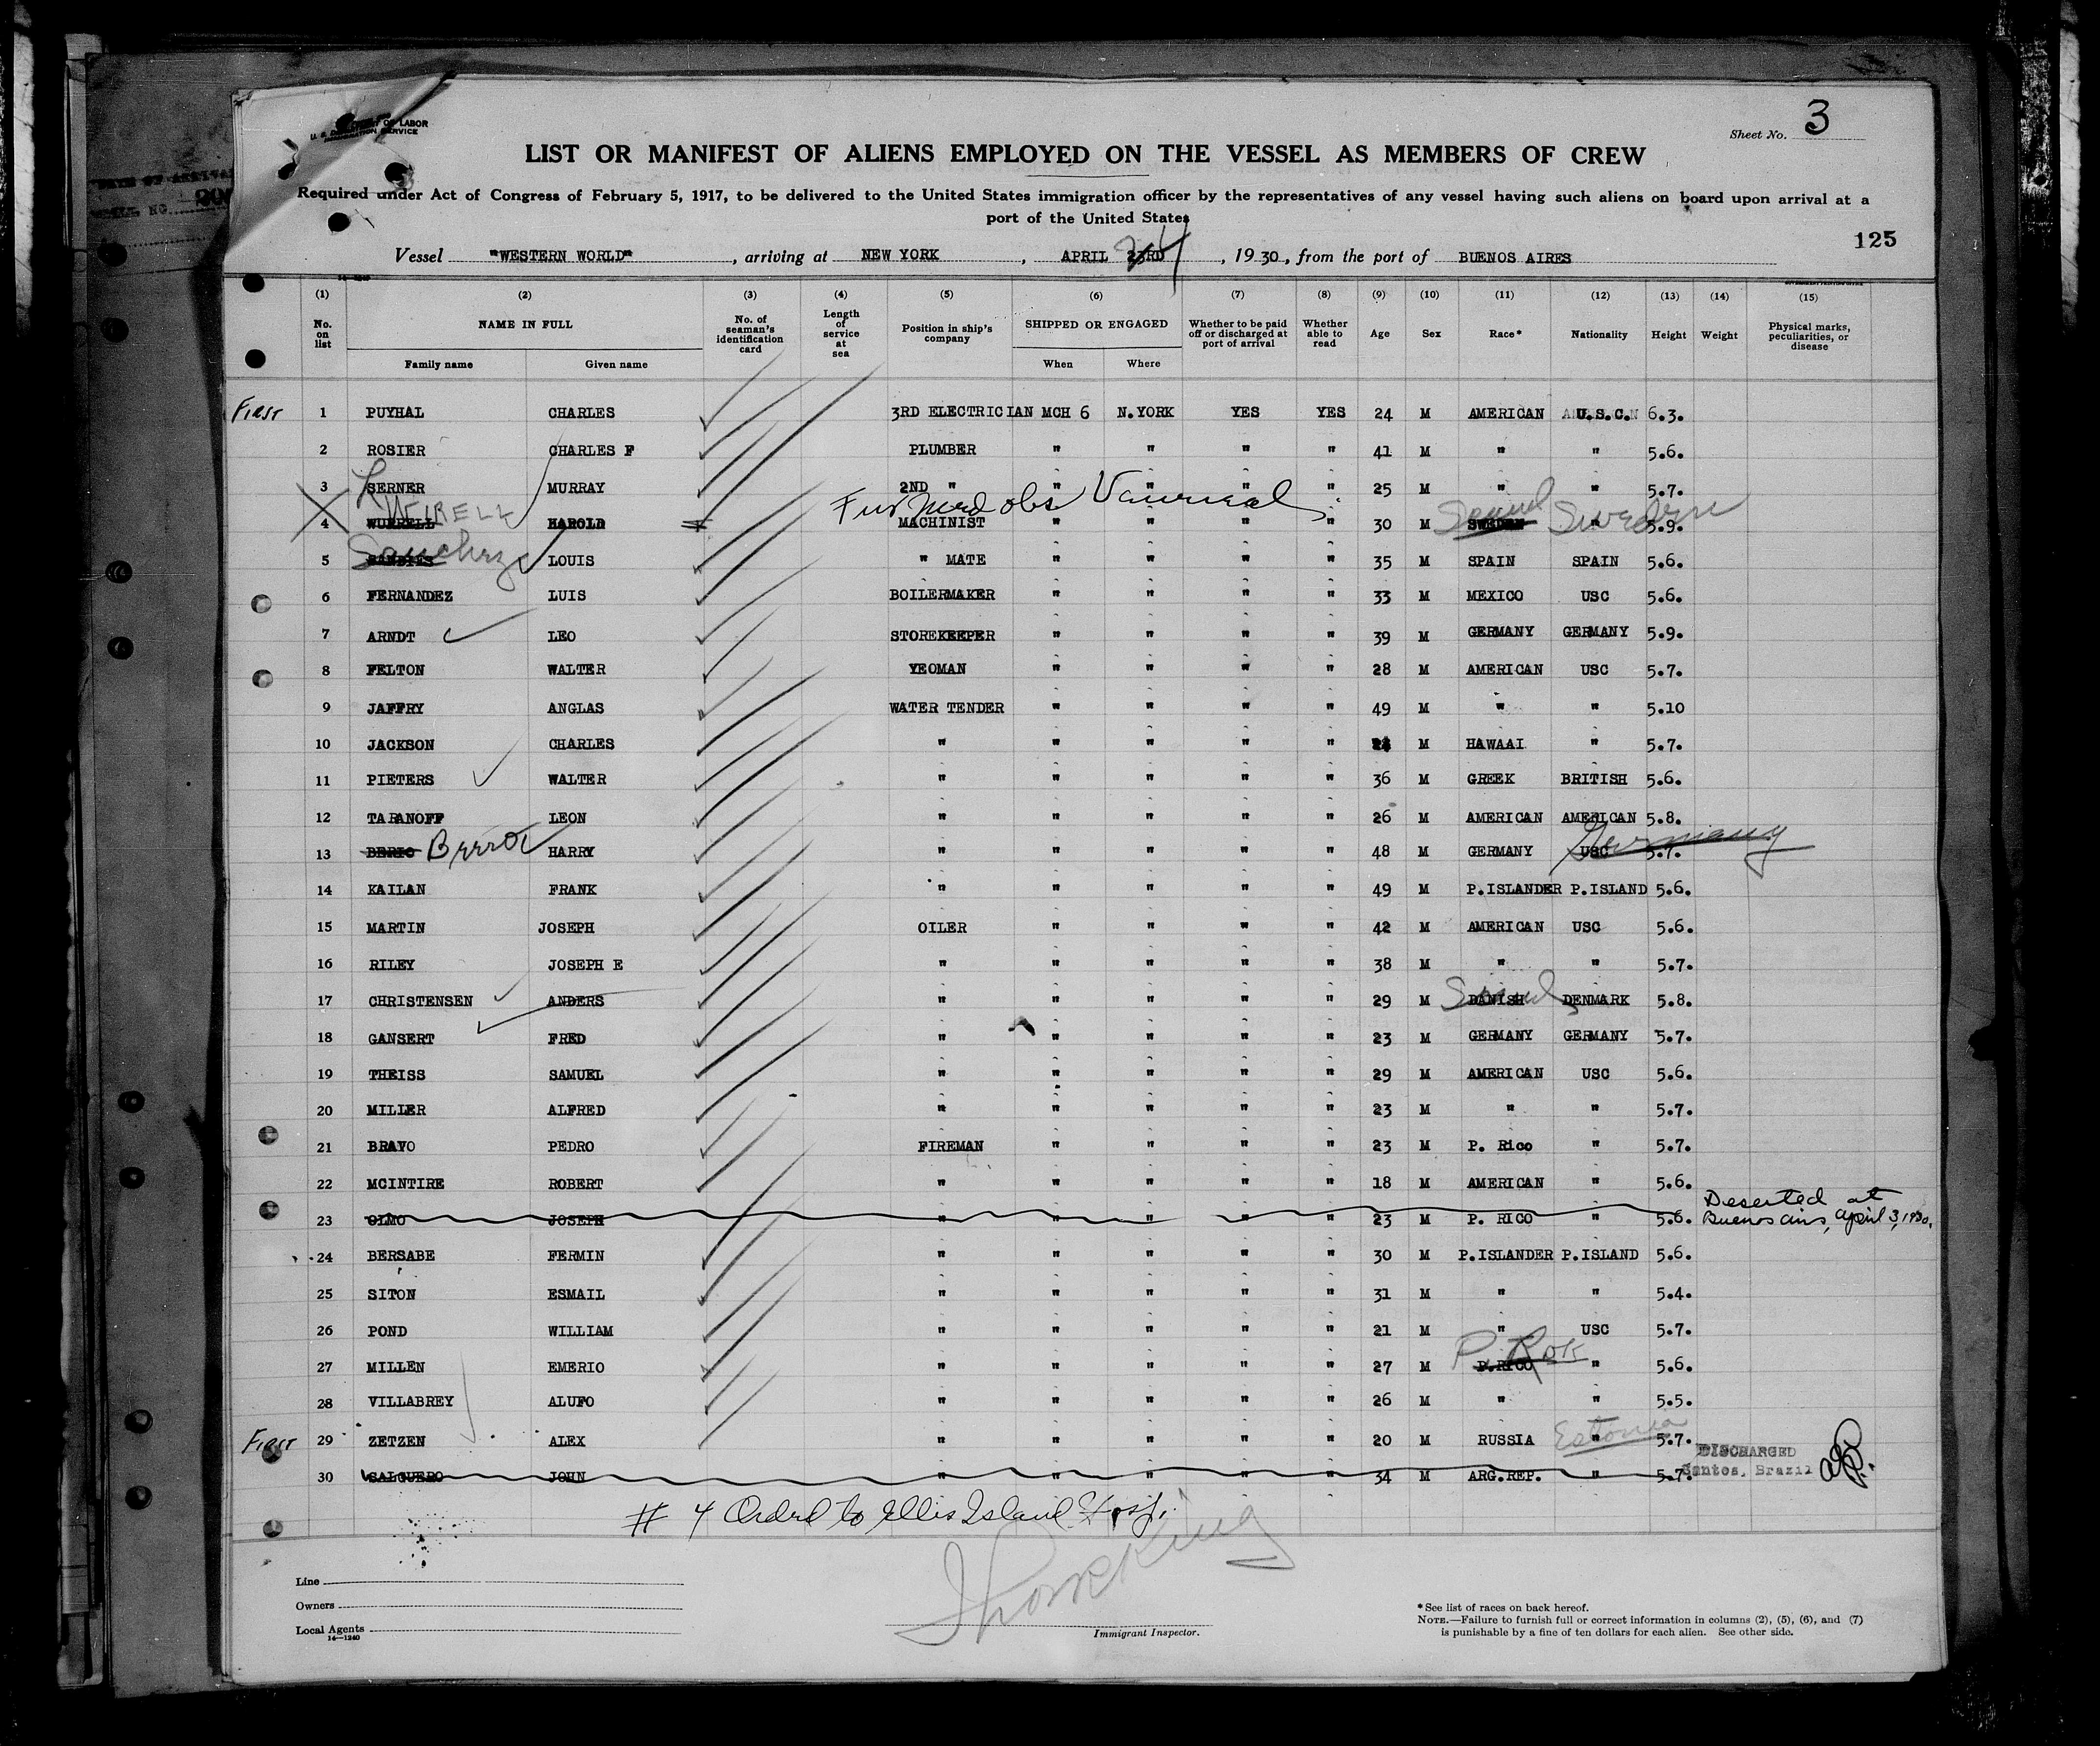 U. S. DEPARTMENT OF LABOR
IMMIGRATION SERVICE
Sheet No. 3
LIST OR MANIFEST OF ALIENS EMPLOYED ON THE VESSEL AS MEMBERS OF CREW
Required under Act of Congress of February 5, 1917, to be delivered to the United States immigration officer by the representatives of any vessel having such aliens on board upon arrival at a
port of the United States
125
Vessel "WESTERN WORLD", arriving at NEW YORK, APRIL 23RD 24, 1930, from the port of BUENOS AIRES
(1) (2) (3) (4) (5) (6) (7) (8) (9) (10) (11) (12) (13) (14) (15)
No. on list NAME IN FULL Family name Given name No. of seaman's identification card Length of service at sea Position in ship's company SHIPPED OR ENGAGED When Where Whether to be paid off or discharged at port of arrival Whether able to read Age Sex Race* Nationality Height Weight Physical marks, peculiarities, or disease
First 1 PUYHAL CHARLES 3RD ELECTRICIAN MCH 6 N.YORK YES YES 24 M AMERICAN U.S.C. 6.3.
2 ROSIER CHARLES F PLUMBER " " " " 41 M " " 5.6.
3 SERNER MURRAY 2ND " " " " " 25 M " " 5.7.
4 HAROLD MACHINIST " " " " 30 M SWEDEN Scand " Sweden 5.9.
5 Sanchez LOUIS " MATE " " " " 35 M SPAIN SPAIN 5.6.
6 FERNANDEZ LUIS BOILERMAKER " " " " 33 M MEXICO USC 5.6.
7 ARNDT LEO STOREKEEPER " " " " 39 M GERMANY GERMANY 5.9.
8 FELTON WALTER YEOMAN " " " " 28 M AMERICAN USC 5.7.
9 JAFFRY ANGLAS WATER TENDER " " " " 49 M " " 5.10
10 JACKSON CHARLES " " " " " M HAWAAI " 5.7.
11 PIETERS WALTER " " " " " 36 M GREEK BRITISH 5.6.
12 TARANOFF LEON " " " " " 26 M AMERICAN AMERICAN 5.8.
13 HARRY " " " " " 48 M GERMANY USC Germany 5.7.
14 KAILAN FRANK " " " " " 49 M P.ISLANDER P.ISLAND 5.6.
15 MARTIN JOSEPH OILER " " " " 42 M AMERICAN USC 5.6.
16 RILEY JOSEPH E " " " " " 38 M " " 5.7.
17 CHRISTENSEN ANDERS " " " " " 29 M DANISH Scand DENMARK 5.8.
18 GANSERT FRED " " " " " 23 M GERMANY GERMANY 5.7.
19 THEISS SAMUEL " " " " " 29 M AMERICAN USC 5.6.
20 MILLER ALFRED " " " " " 23 M " " 5.7.
21 BRAVO PEDRO FIREMAN " " " " 23 M P. Rico " 5.7.
22 MCINTIRE ROBERT " " " " " 18 M AMERICAN " 5.6.
23 OLMO JOSEPH " " " " " 23 M P. RICO " 5.6. Deserted at
Buenos airs, april 3, 1930.
24 BERSABE FERMIN " " " " " 30 M P.ISLANDER P.ISLAND 5.6.
25 SITON ESMAIL " " " " " 31 M " " 5.4.
26 POND WILLIAM " " " " " 21 M " USC 5.7.
27 MILLEN EMERIO " " " " " 27 M P.RICO " 5.6.
28 VILLABREY ALUFO " " " " " 26 M " " 5.5.
First 29 ZETZEN ALEX " " " " " 20 M RUSSIA " Estonia 5.7.
30 SALGUERO JOHN " " " " " 34 M ARG.REP. " 5.7. DISCHARGED
Santos, Brazil
# 4 Ordrd to Ellis Island Hosp.
Line
Owners
Local Agents
14-1240
Immigrant Inspector.
*See list of races on back hereof.
NOTE.—Failure to furnish full or correct information in columns (2), (5), (6), and (7)
is punishable by a fine of ten dollars for each alien. See other side.